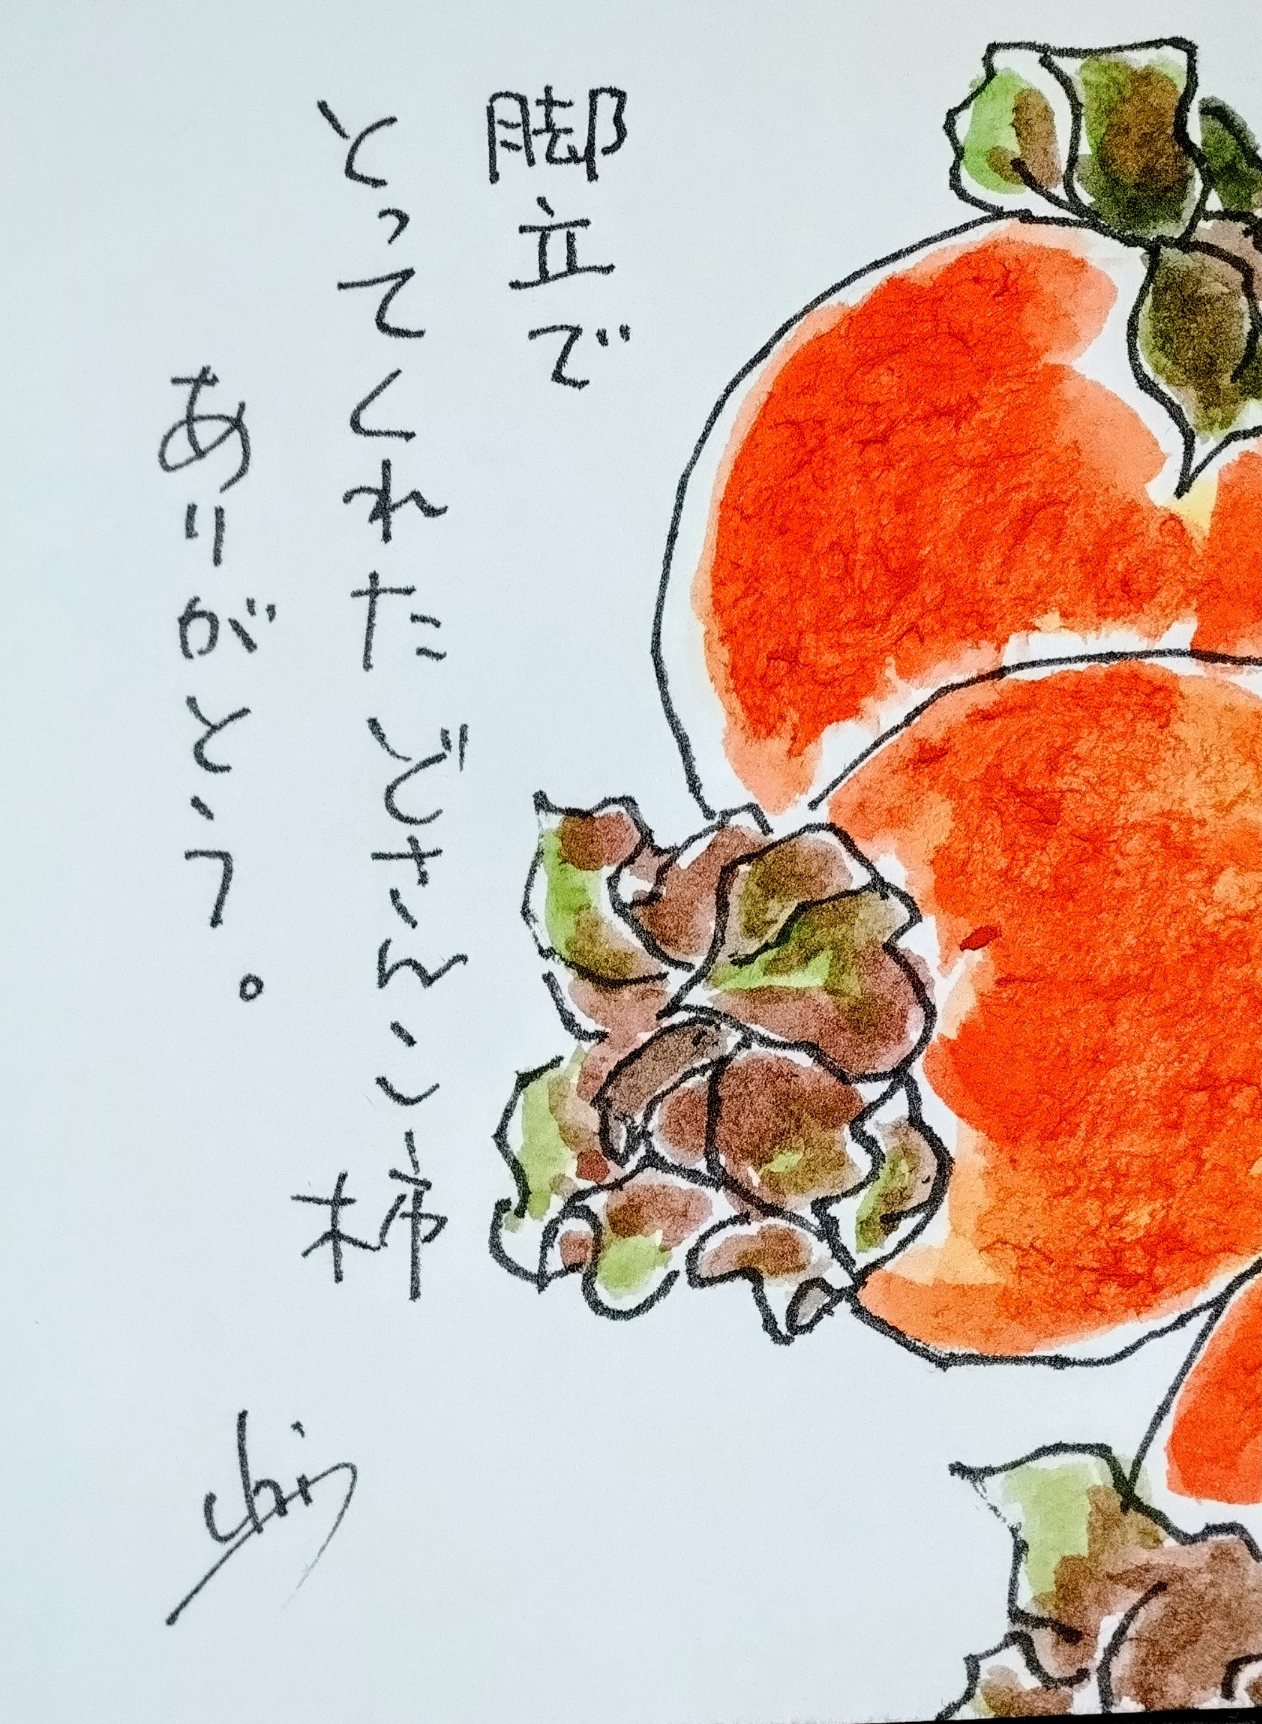 脚立で
とってくれたどさんこ柿
ありがとう。